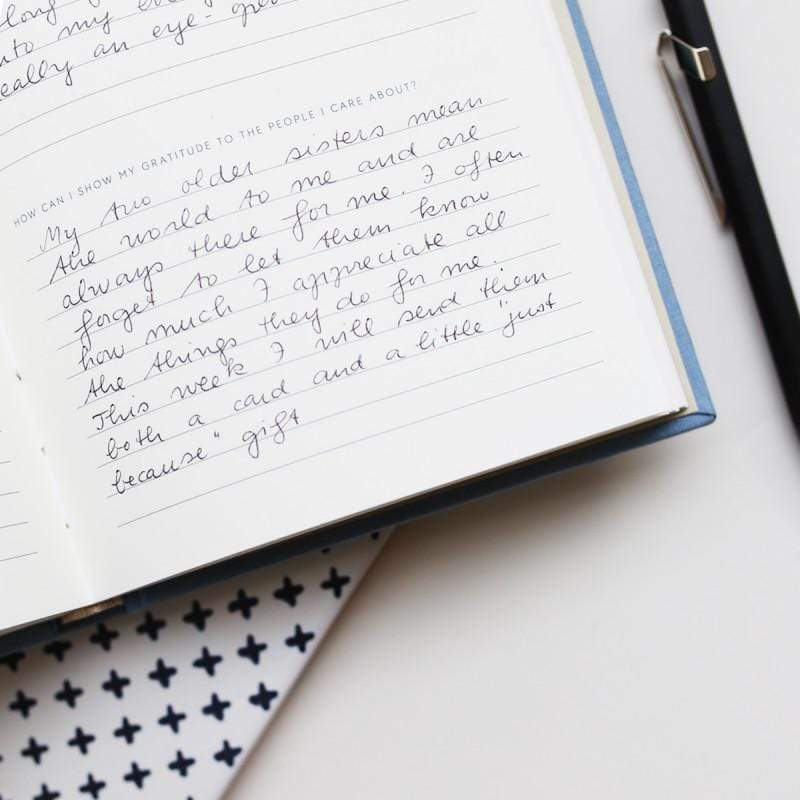 long
my
eally an eye-
HOW CAN I SHOW MY GRATITUDE TO THE PEOPLE I CARE ABOUT?
My two older sisters mean
the world to me and are
always there for me. I often
forget to let them know
how much I appreciate all
the things they do for me.
This week I will send them
both a card and a little "just
because" gift